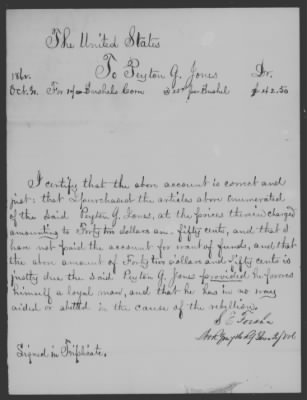 The United States
To Peyton G. Jones Dr.
186
Oct. For Bushels Corn per Bushel $42.50
I certify that the above account is correct and
just: that I purchased the articles above enumerated
of the said Peyton G. Jones, at the prices therein charged
amounting to Forty two dollars and fifty cents, and that I
have not paid the account for want of funds, and that
the above amount of Forty two dollars and fifty cents is
justly due the said Peyton G. Jones provided he proves
himself a loyal man, and that he has in no way
aided or abetted in the cause of the rebellion.
S E
Signed in Triplicate.